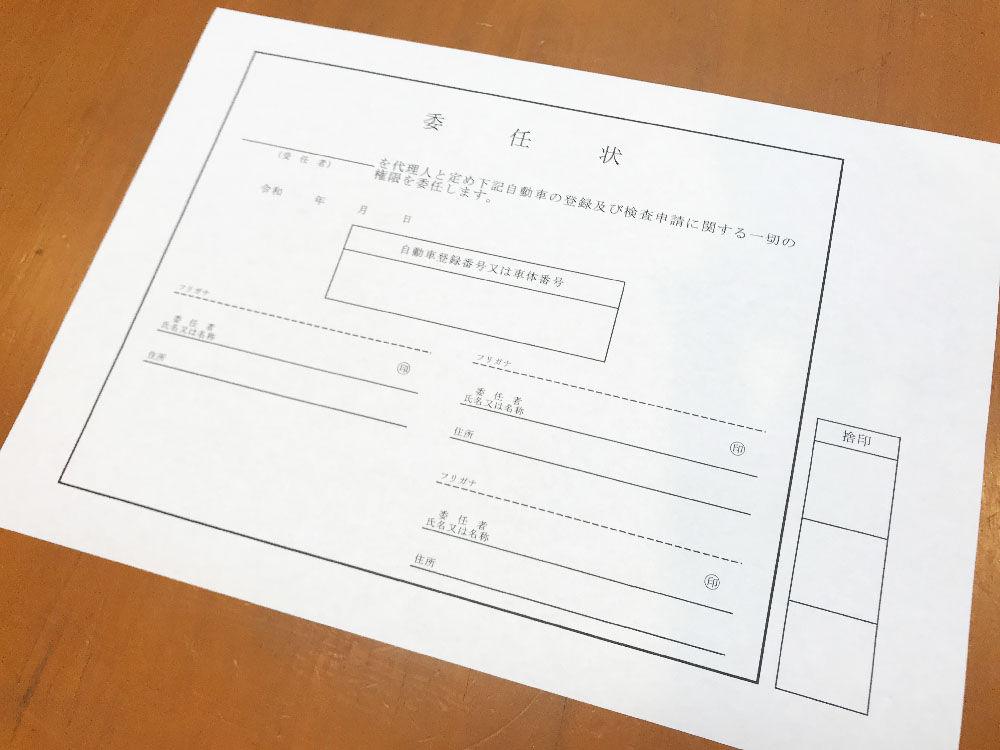 委任状
(受任者) を代理人と定め下記自動車の登録及び検査申請に関する一切の
権限を委任します。
令和 年 月 日
自動車登録番号又は車体番号
フリガナ
委任者
氏名又は名称 ㊞
住所
フリガナ
委任者
氏名又は名称 ㊞
住所
フリガナ
委任者
氏名又は名称 ㊞
住所
捨印